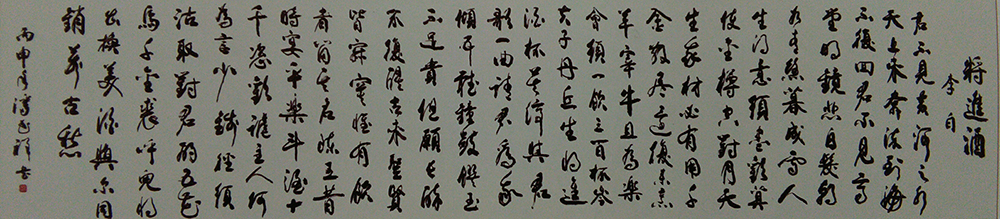 將進酒
李白
君不見黃河之水
天上來奔流到海
不復回君不見高
堂明鏡悲白髮朝
如青絲暮成雪人
生得意須盡歡莫
使金樽空對月天
生我材必有用千
金散盡還復來烹
羊宰牛且為樂
會須一飲三百杯岑
夫子丹丘生將進
酒杯莫停與君
歌一曲請君為我
傾耳聽鐘鼓饌玉
不足貴但願長醉
不復醒古來聖賢
皆寂寞惟有飲
者留其名陳王昔
時宴平樂斗酒十
千恣歡謔主人何
為言少錢徑須
沽取對君酌五花
馬千金裘呼兒將
出換美酒與爾同
銷萬古愁
丙申年